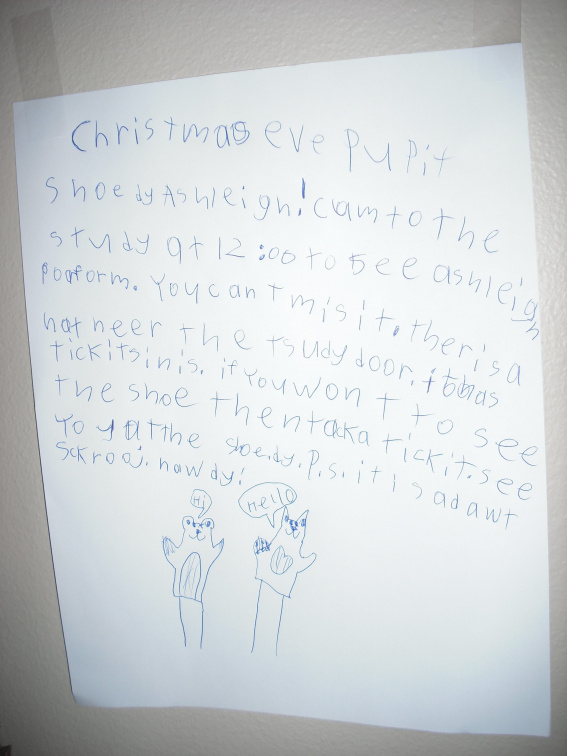 Christmas eve Pupit
Shoe dy Ashleigh! cam to the
study at 12:00 to see ashleigh
pooform. You cant mis it. ther is a
hat neer the tsudy door. it has
tickits in is. if you wont to see
the shoe then taka tickit. see
yo yatthe shoe. dy. P.S. it is adawt
Sckrooj. nawdy!
Hi
Hello